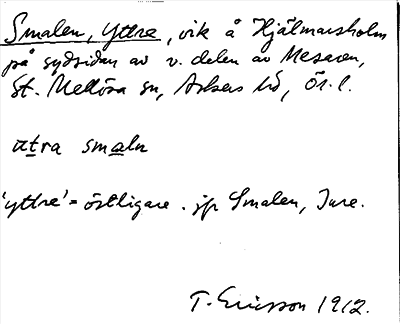 Smalen, Yttre, vik å Hjälmarsholm
på sydsidan av v. delen av Mesaren,
St. Mellösa sn, Askers hd, Ör. l.
ɯtra smaln
'yttre' = östligare. jfr Smalen, Inre.
T. Ericsson 1912.